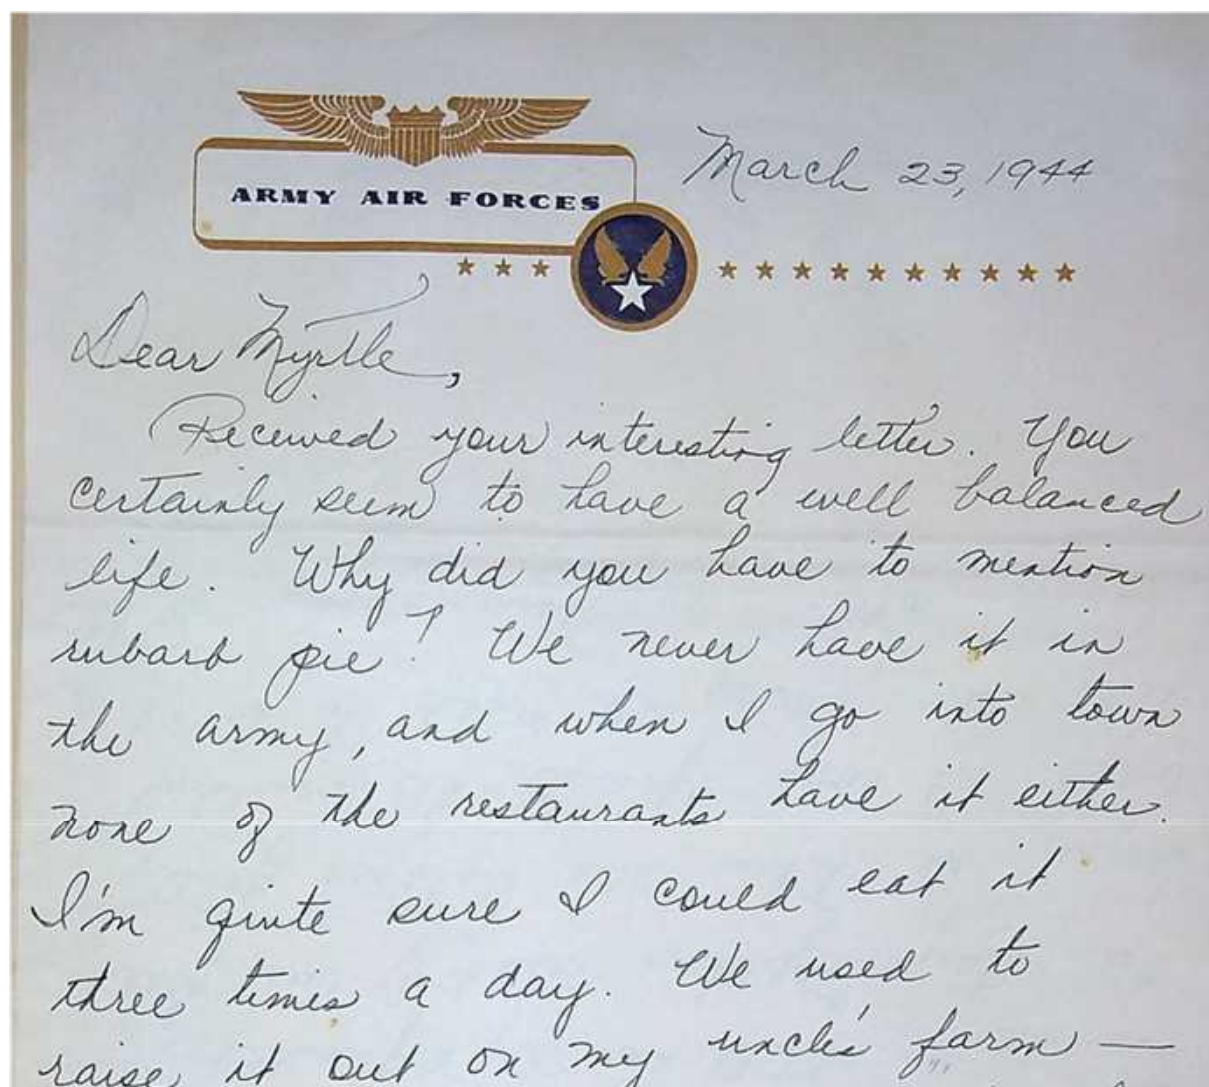 ARMY AIR FORCES
March 23, 1944
Dear Myrtle,
Received your interesting letter. You
certainly seem to have a well balanced
life. Why did you have to mention
rubarb pie? We never have it in
the army, and when I go into town
none of the restaurants have it either.
I'm quite sure I could eat it
three times a day. We used to
raise it out on my uncle's farm —